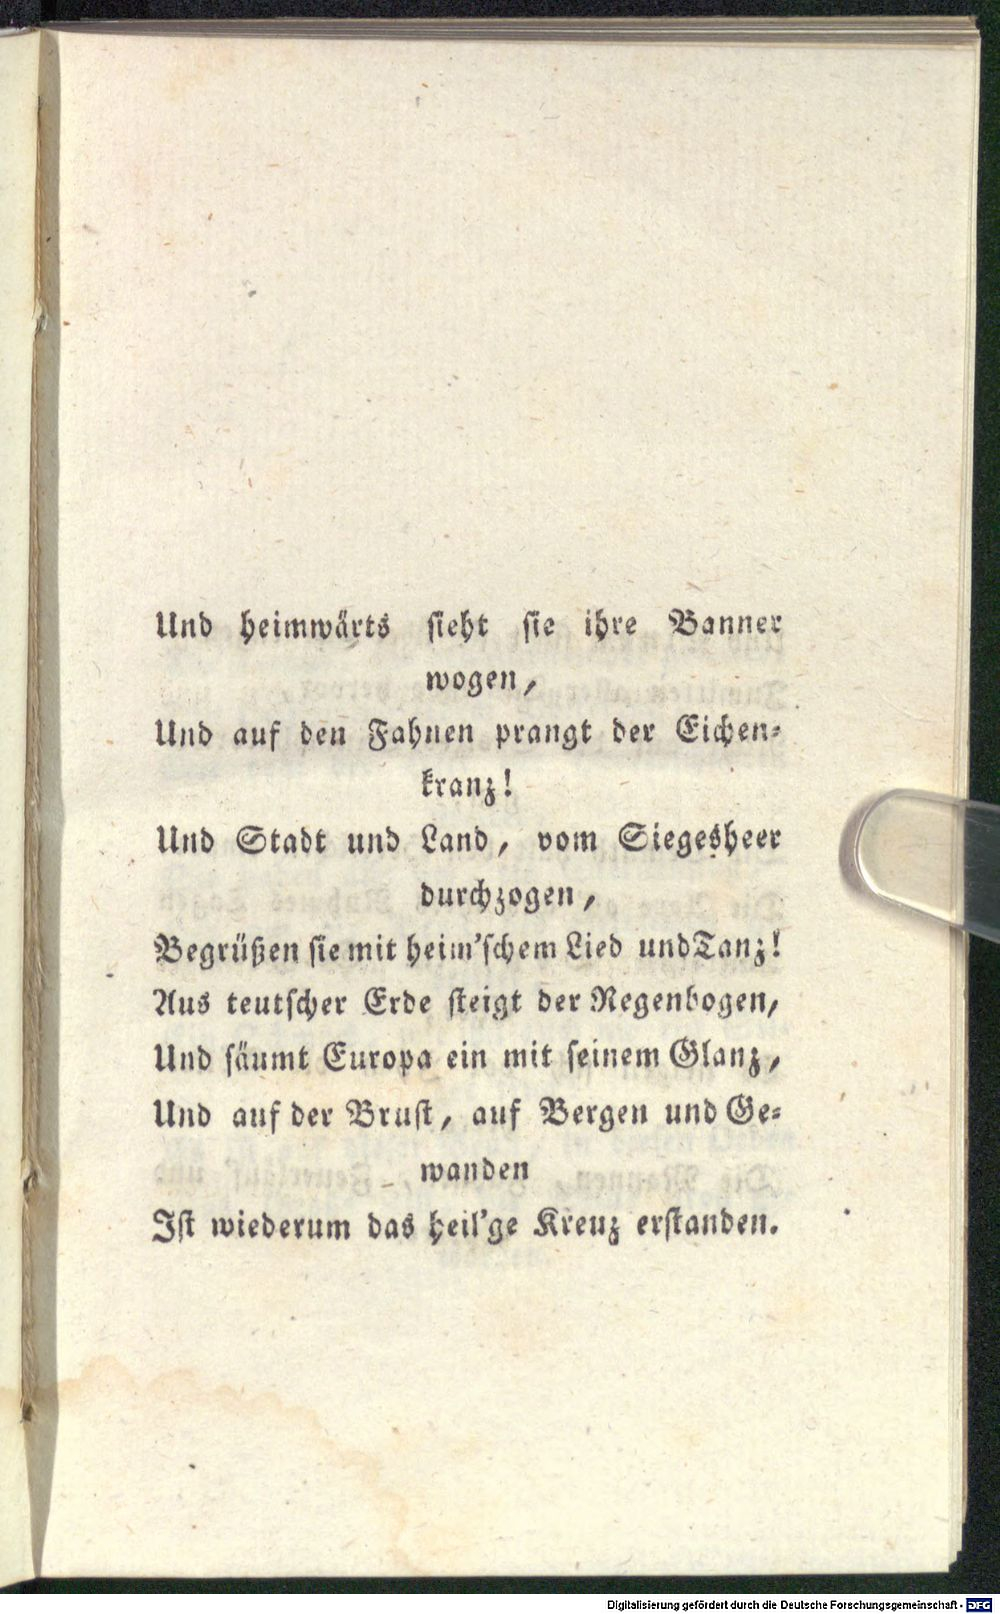 Und heimwärts sieht sie ihre Banner
wogen,
Und auf den Fahnen prangt der Eichen-
kranz!
Und Stadt und Land, vom Siegesheer
durchzogen,
Begrüßen sie mit heim'schem Lied und Tanz!
Aus teutscher Erde steigt der Regenbogen,
Und säumt Europa ein mit seinem Glanz,
Und auf der Brust, auf Bergen und Ge-
wanden
Ist wiederum das heil'ge Kreuz erstanden.
Digitalisierung gefördert durch die Deutsche Forschungsgemeinschaft - DFG